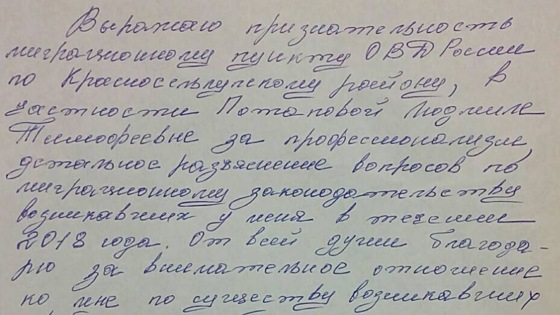 Выражаю признательность
миграционному пункту ОВД России
по Красноселькупскому району, в
частности Потаповой Людмиле
Тимофеевне за профессионализм,
детальное разъяснение вопросов по
миграционному законодательству
возникавших у меня в течении
2018 года. От всей души благода-
рю за внимательное отношение
ко мне по существу возникавших